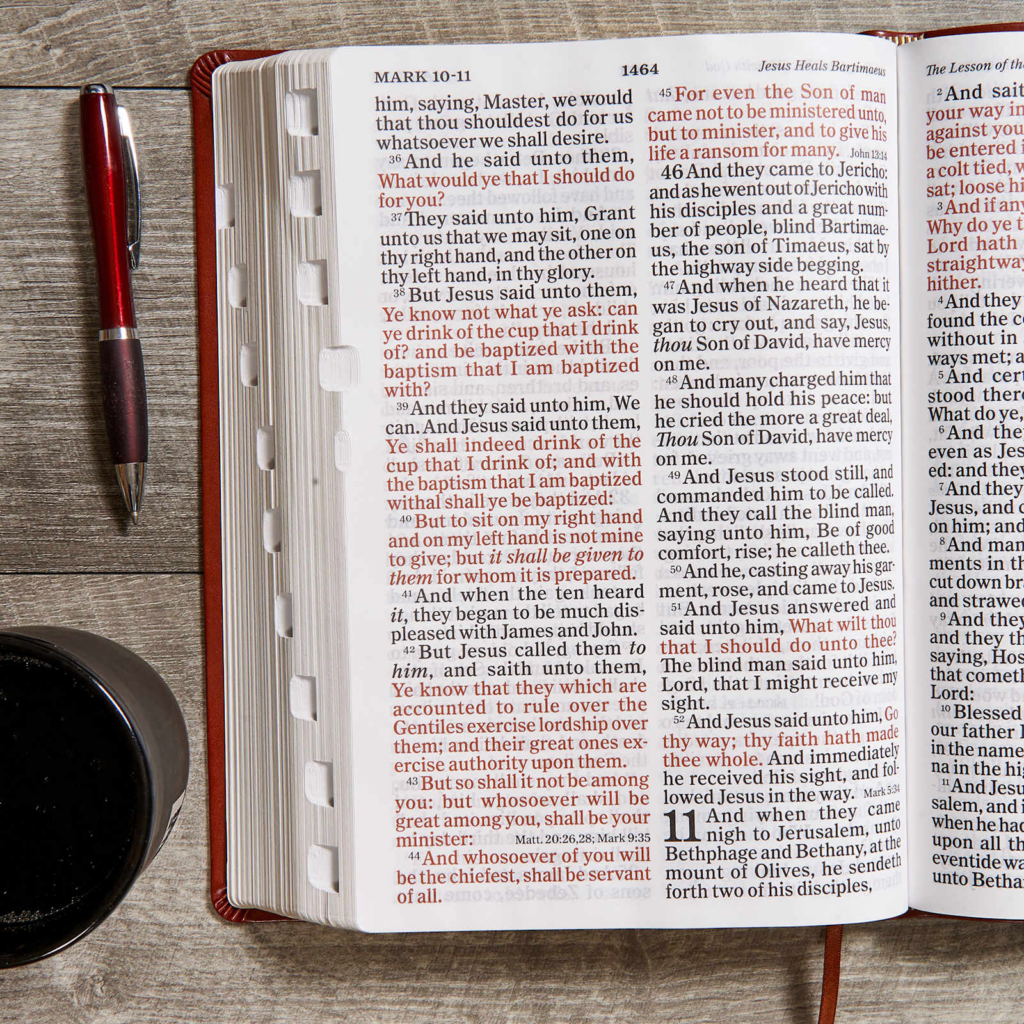 MARK 10-11
1464
Jesus Heals Bartimaeus
him, saying, Master, we would
that thou shouldest do for us
whatsoever we shall desire.
36 And he said unto them,
What would ye that I should do
for you?
37 They said unto him, Grant
unto us that we may sit, one on
thy right hand, and the other on
thy left hand, in thy glory.
38 But Jesus said unto them,
Ye know not what ye ask: can
ye drink of the cup that I drink
of? and be baptized with the
baptism that I am baptized
with?
39 And they said unto him, We
can. And Jesus said unto them,
Ye shall indeed drink of the
cup that I drink of; and with
the baptism that I am baptized
withal shall ye be baptized:
40 But to sit on my right hand
and on my left hand is not mine
to give; but it shall be given to
them for whom it is prepared.
41 And when the ten heard
it, they began to be much dis-
pleased with James and John.
42 But Jesus called them to
him, and saith unto them,
Ye know that they which are
accounted to rule over the
Gentiles exercise lordship over
them; and their great ones ex-
ercise authority upon them.
43 But so shall it not be among
you: but whosoever will be
great among you, shall be your
minister: Matt. 20:26,28; Mark 9:35
44 And whosoever of you will
be the chiefest, shall be servant
of all.
45 For even the Son of man
came not to be ministered unto,
but to minister, and to give his
life a ransom for many. John 13:14
46 And they came to Jericho:
and as he went out of Jericho with
his disciples and a great num-
ber of people, blind Bartimae-
us, the son of Timaeus, sat by
the highway side begging.
47 And when he heard that it
was Jesus of Nazareth, he be-
gan to cry out, and say, Jesus,
thou Son of David, have mercy
on me.
48 And many charged him that
he should hold his peace: but
he cried the more a great deal,
Thou Son of David, have mercy
on me.
49 And Jesus stood still, and
commanded him to be called.
And they call the blind man,
saying unto him, Be of good
comfort, rise; he calleth thee.
50 And he, casting away his gar-
ment, rose, and came to Jesus.
51 And Jesus answered and
said unto him, What wilt thou
that I should do unto thee?
The blind man said unto him,
Lord, that I might receive my
sight.
52 And Jesus said unto him, Go
thy way; thy faith hath made
thee whole. And immediately
he received his sight, and fol-
lowed Jesus in the way. Mark 5:34
11 And when they came
nigh to Jerusalem, unto
Bethphage and Bethany, at the
mount of Olives, he sendeth
forth two of his disciples,
The Lesson of the
2 And sait
your way in
against you
be entered i
a colt tied, w
sat; loose hi
3 And if any
Why do ye t
Lord hath
straightway
hither.
4 And they
found the co
without in
ways met; a
5 And cert
stood there
What do ye,
6 And they
even as Jes
ed: and they
7 And they
Jesus, and c
on him; and
8 And man
ments in th
cut down br
and strawed
9 And they
and they th
saying, Hos
that cometh
Lord:
10 Blessed
our father
in the name
na in the hig
11 And Jesu
salem, and i
when he had
upon all th
eventide wa
unto Betha